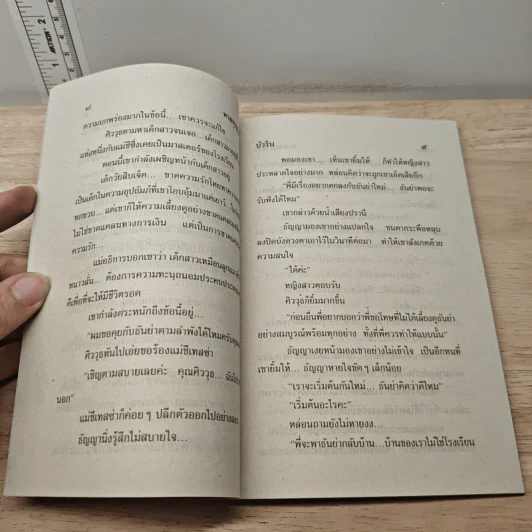 ๘
ความบกพร่องมากในข้อนี้... เขาควรจะแก้ไข
ศิวรุธตามหาเด็กสาวจนเจอ...
แห่งหนึ่งกับแม่ชีซึ่งเคยเป็นมาสเตอร์ของโรงเรียน
ตอนนี้เขากำลังเผชิญหน้ากับเด็กสาวอยู่
เด็กวัยสิบเจ็ด... ขาดความรักโดย
เป็นเด็กในความอุปถัมภ์ที่เขาโอบอุ้มมา
หกขวบ... แต่เขาก็ให้ความเลี้ยงดูอย่างขาดแคลน
ไม่ใช่ขาดแคลนทางการเงิน แต่เป็นการขาดแคลน
ความรัก...
แม่อธิการบอกเขาว่า เด็กสาวเหมือนลูกแมว
หนาวสั่น... ต้องการความทะนุถนอมประคบประหงม
ดีเพื่อที่จะให้มีชีวิตรอด
เขากำลังตระหนักถึงข้อนี้อยู่...
“ผมขอคุยกับอันย่าตามลำพังได้ไหมครับคุณ
ศิวรุธหันไปเอ่ยขอร้องแม่ชีเทลซ่า
“เชิญตามสบายเลยค่ะ คุณศิวรุธ...
นอก”
แม่ชีเทลซ่าก็ค่อย ๆ ปลีกตัวออกไปอย่าง
ธัญญานั่งรู้สึกไม่สบายใจ...
บัวริน
๙
พอมองเขา... เห็นเขายิ้มให้ ก็ทำให้หญิงสาว
ประหลาดใจอย่างมาก หล่อนคิดว่าจะถูกเขาเอ็ดเสียอีก
“พี่มีเรื่องอยากตกลงกับอันย่าใหม่... อันย่าพอจะ
รับฟังได้ไหม”
เขากล่าวด้วยน้ำเสียงปรานี
ธัญญามองเขาอย่างแปลกใจ ขนตากระพือหลุบ
ลงปิดบังดวงตาเอาไว้ในวินาทีต่อมา ทำให้เขาสังเกตด้วย
ความสนใจ
“ได้ค่ะ”
หญิงสาวตอบรับ
ศิวรุธก็ยิ้มมากขึ้น
“ก่อนอื่นพี่อยากบอกว่าพี่ขอโทษที่ไม่ได้เลี้ยงดูอันย่า
อย่างสมบูรณ์พร้อมทุกอย่าง ทั้งที่พี่ควรทำให้แบบนั้น”
ธัญญาเงยหน้ามองเขาอย่างไม่เข้าใจ เป็นอีกหนที่
เขายิ้มให้... ธัญญาหายใจขัดๆ เล็กน้อย
“เราจะเริ่มต้นกันใหม่... อันย่าคิดว่าดีไหม”
“เริ่มต้นอะไรคะ”
หล่อนถามยังไม่หายงง...
“พี่จะพาอันย่ากลับบ้าน...บ้านของเราไม่ใช่โรงเรียน